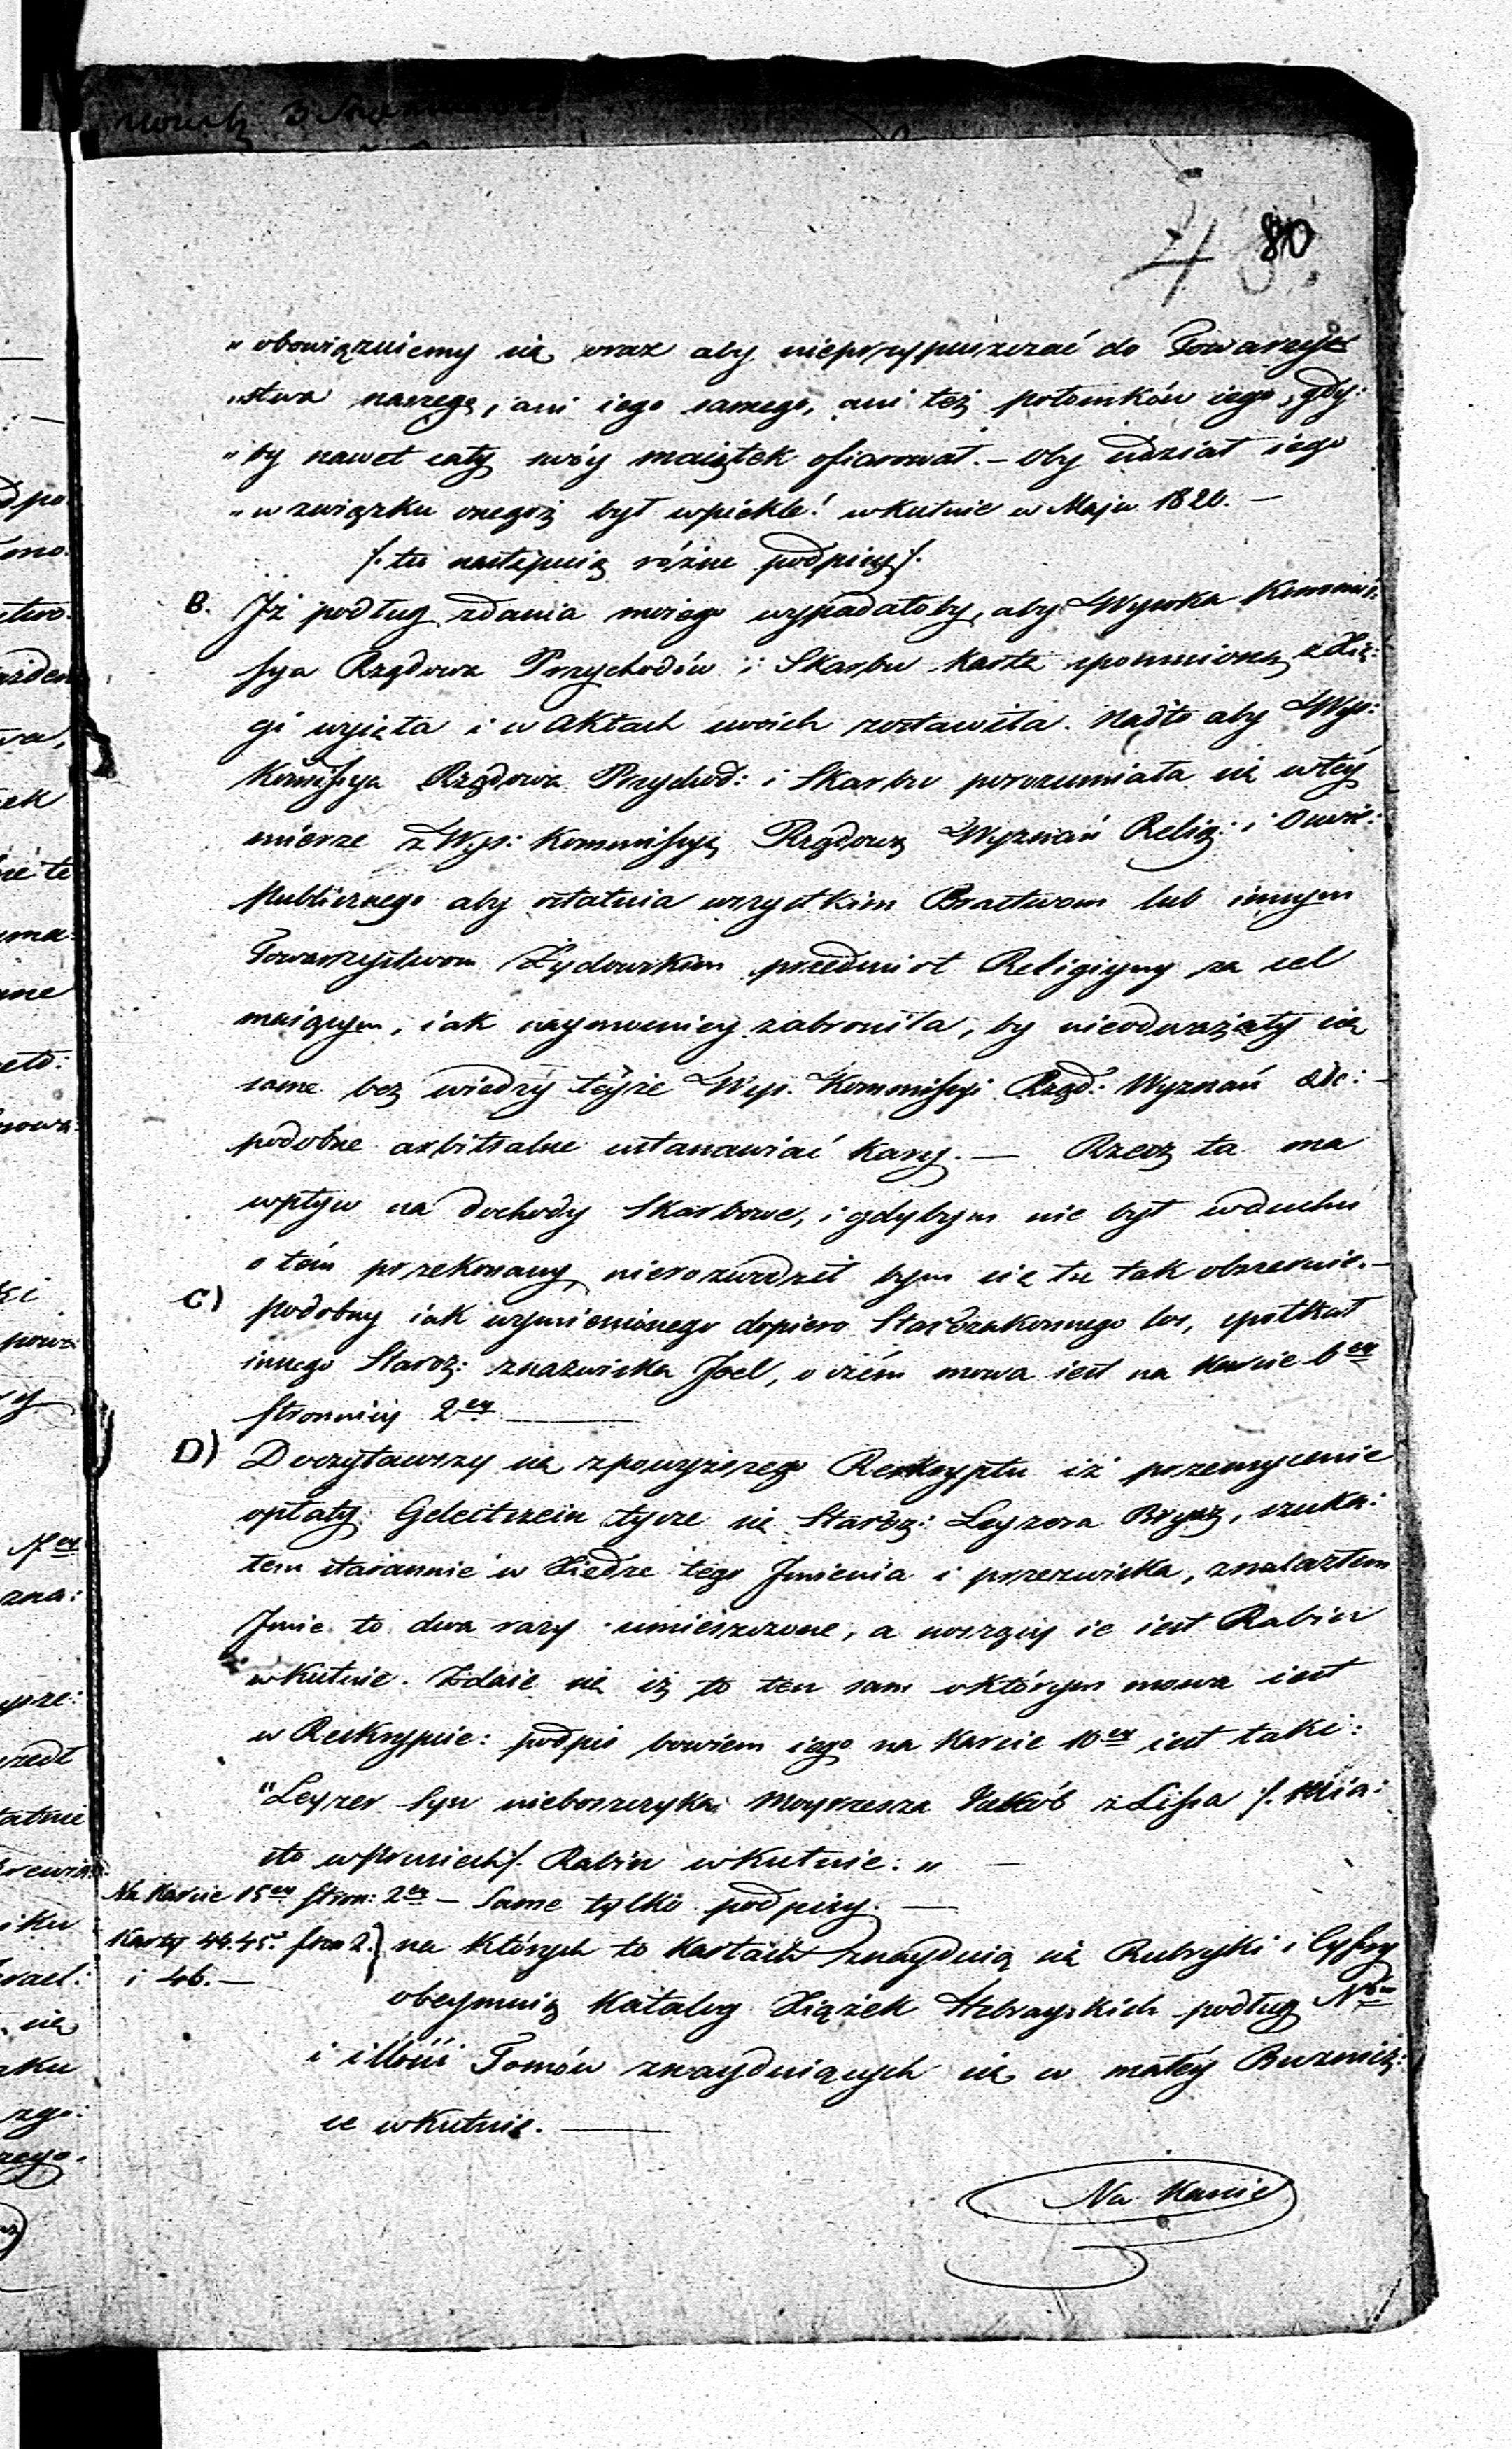 80
„obowiązuiemy się oraz aby nieprzypuszczać do Towarzyst
„stwa naszego, ani iego samego, ani też potomków iego, gdy:
„by nawet cały swóy maiątek ofiarował. – Oby udział iego
„w związku onegoż był wpiekle! w Kutnie w Maju 1820. –
/. tu nastąpuią różne podpisy /.
B. Iż podług zdania moiego wypadałoby, aby Wysoka Kommis:
sya Rządowa Przychodów i Skarbu kartę spomnioną z Xię:
gi wyięła i w Aktach swoich zostawiła. Nadto aby Wys:
Kommissya Rządowa Przychod: i Skarbu porozumiała się w téy
mierze z Wys: Kommissyą Rządową Wyznań Relig: i Oświe:
Publicznego aby ostatnia wszystkim Bractwom lub innym
Towarzystwom Żydowskim przedmiot Religiyny za cel
maiącym, iak naymocniey zabroniła, by nieodważały się
same bez wiedzy teyże Wys. Kommissyi Rząd: Wyznań &c: –
podobne arbitralne ustanawiać kary. — Rzecz ta ma
wpływ na dochody Skarbowe, i gdybym nie był w duchu
o tém przekonany, nierozwodził bym się tu tak obszernie. –
C) Podobny iak wymienionego dopiero Starozakonnego los, spotkał
innego Staroz: z nazwiska Joel, o czém mowa iest na karcie 6ey
stronnicy 2ey —
D) Doczytawszy się z powyższego Reskryptu iż przemycenie
opłaty Geleitzein tycze się Staroz: Leyzera Bryssz, szuka:
łem starannie w Xiędze tego Jmienia i przezwiska, znalazłem
Jmie to dwa razy umieszczone, a noszący ie iest Rabin
w Kutnie. Zdaie się iż to ten sam o którym mowa iest
w Reskrypcie: podpis bowiem iego na karcie 10ey iest taki:
"Leyzer syn nieboszczyka Moyżesza Jakób z Lissa /. Mia:
sto w Prusiech /. Rabin w Kutnie. „ —
Na karcie 15ey stron: 2ey – Same tylko podpisy. —
Karty 44. 45. stro 2. } na których to kartach znayduią się Rubryki i Cyfry
i 46. —
obeymuią Katalog Xiążek Hebrayskich podług Nrów
i illości Tomów znayduiących się w małéy Buźnicz:
ce w Kutnie. —
Na Karcie